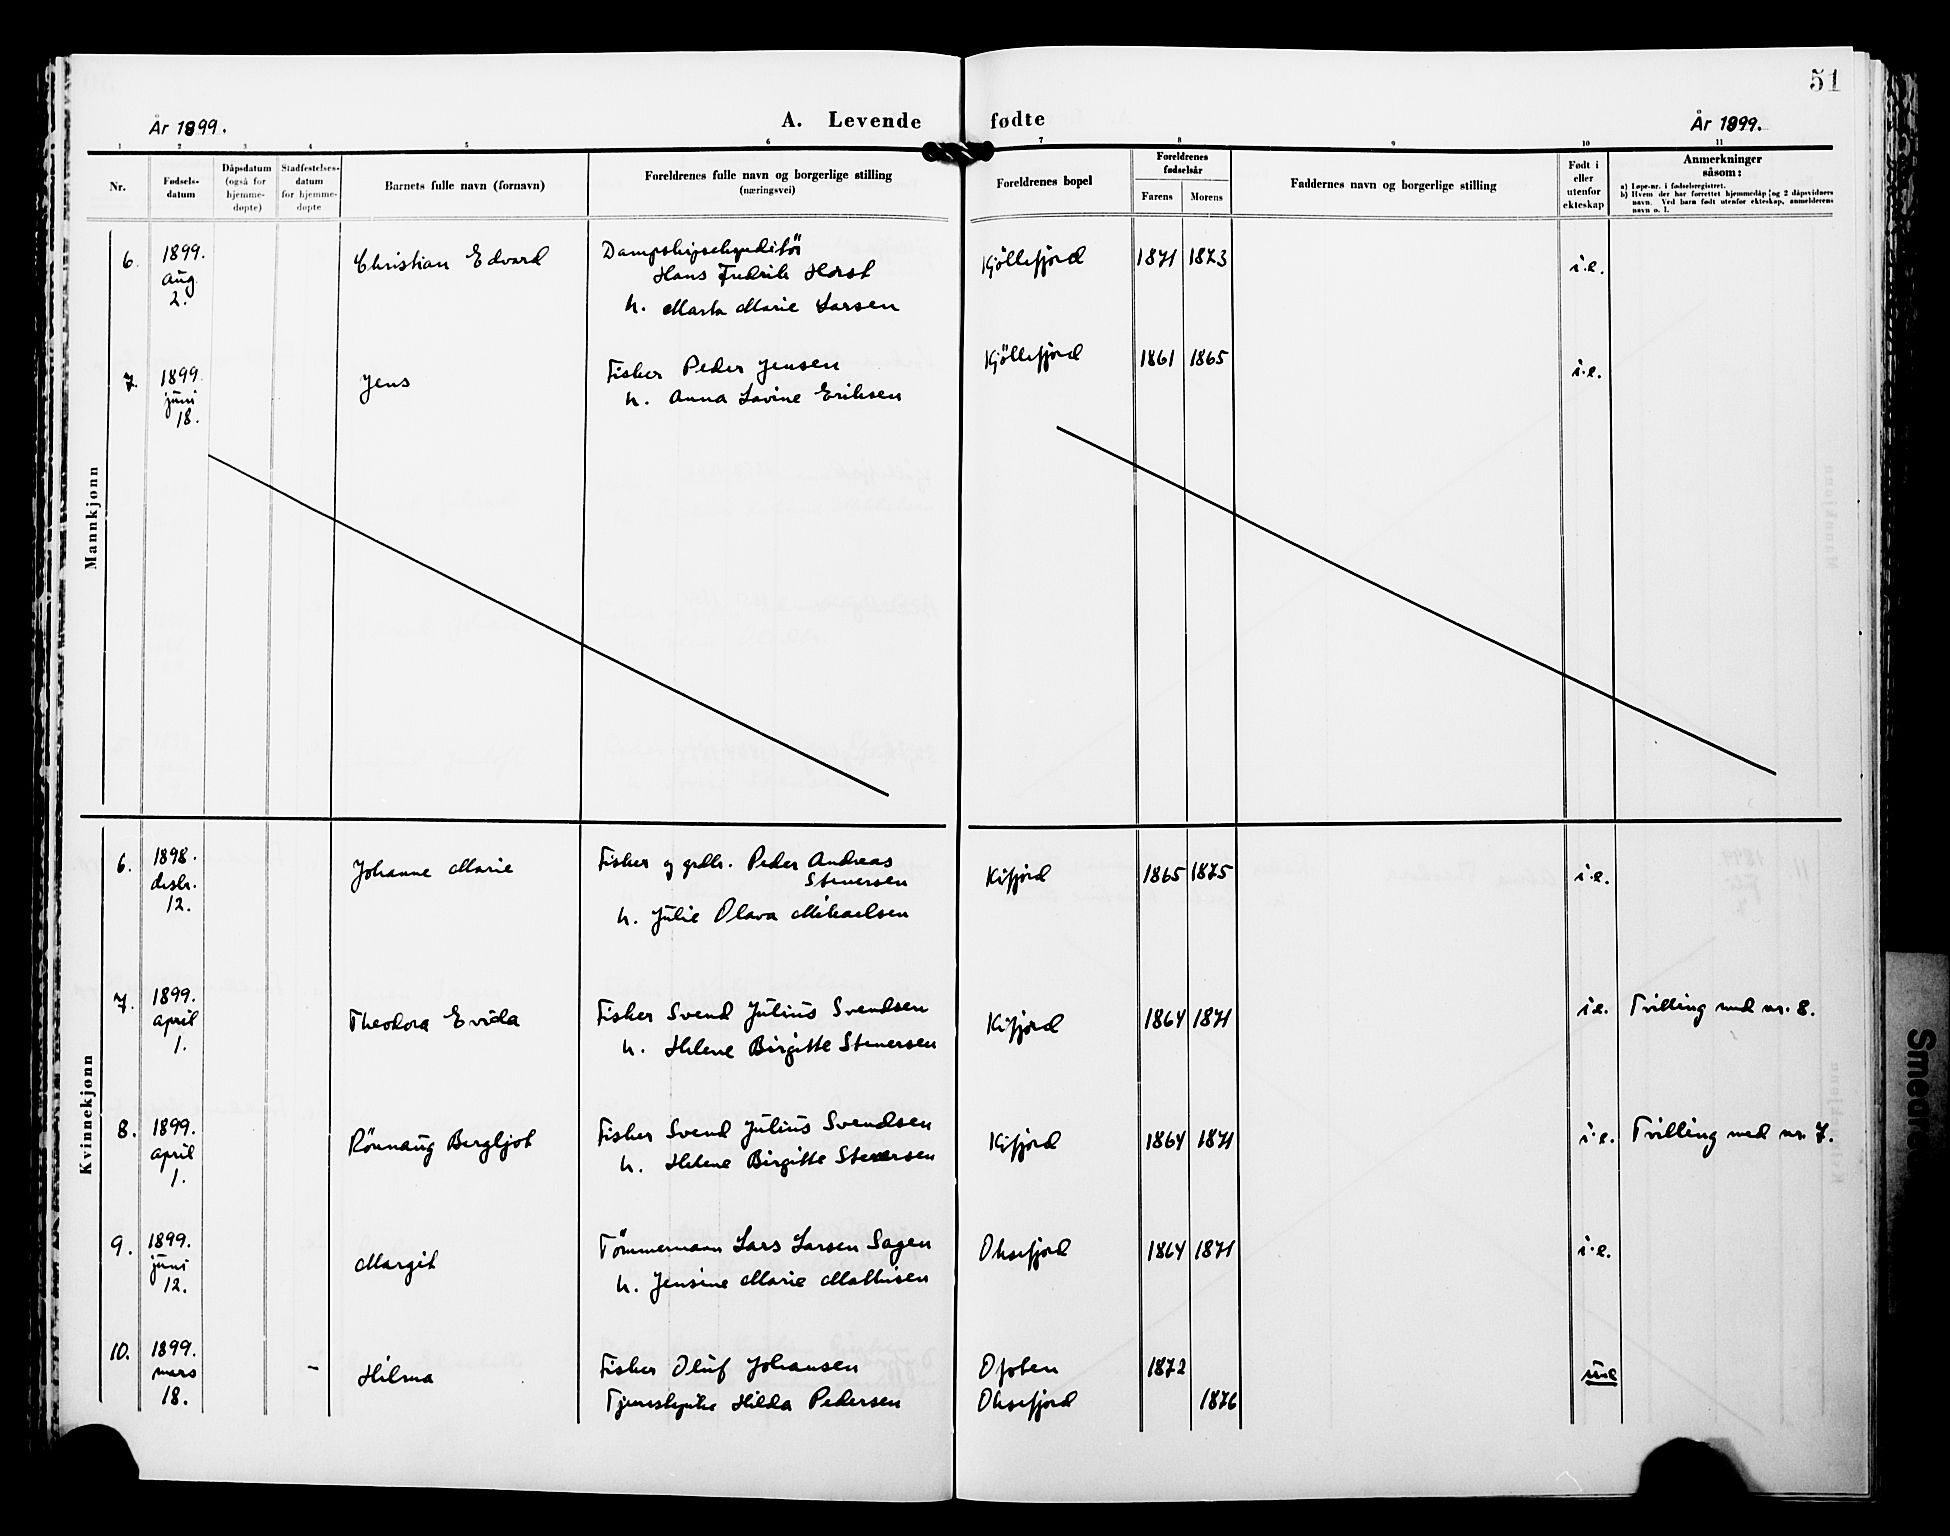 51
År 1899.
A. Levende fødte
År 1899.
1 2 3 4 5 6 7 8 9 10 11
Nr.
Fødsels-
datum
Dåpsdatum
(også for
hjemme-
døpte)
Stadfestelses-
datum
for hjemme-
døpte
Barnets fulle navn (fornavn)
Foreldrenes fulle navn og borgerlige stilling
(næringsvei)
Foreldrenes bopel
Foreldrenes
fødselsår
Farens
Morens
Faddernes navn og borgerlige stilling
Født i
eller
utenfor
ekteskap
Anmerkninger
såsom:
a) Løpe-nr. i fødselsregistret.
b) Hvem der har forrettet hjemmedåp og 2 dåpsvidners
navn. Ved barn født utenfor ekteskap, anmelderens
navn o. l.
Mannkjønn
6. 1899. Christian Edvard Dampskipsekspeditør Kjøllefjord 1871 1873 i.e.
aug. Hans Fredrik Horst
2. h. Marta Marie Larsen
7. 1899. Jens Fisker Peder Jensen Kjøllefjord 1861 1865 i.e.
juni h. Anna Lovine Eriksen
18.
Kvinnekjønn
6. 1898. Johanne Marie Fisker og grdbr. Peder Andreas Kifjord 1865 1875 i.e.
desbr. Stenersen
12. h. Julie Olava Mikaelsen
7. 1899. Theodora Evida Fisker Svend Julius Svendsen Kifjord 1864 1871 i.e. Tvilling med nr. 8.
april h. Helene Birgitte Stenersen
1.
8. 1899. Rönnaug Bergljot Fisker Svend Julius Svendsen Kifjord 1864 1871 i.e. Tvilling med nr. 7.
april h. Helene Birgitte Stenersen
1.
9. 1899. Margit Tömmermann Lars Larsen Sagen Oksefjord 1864 1871 i.e.
juni h. Jensine Marie Mathisen
12.
10. 1899. - Hilma Fisker Oluf Johansen Ofoten 1872 u.e.
mars Tjenestepike Hilda Pedersen Oksefjord 1876
18.